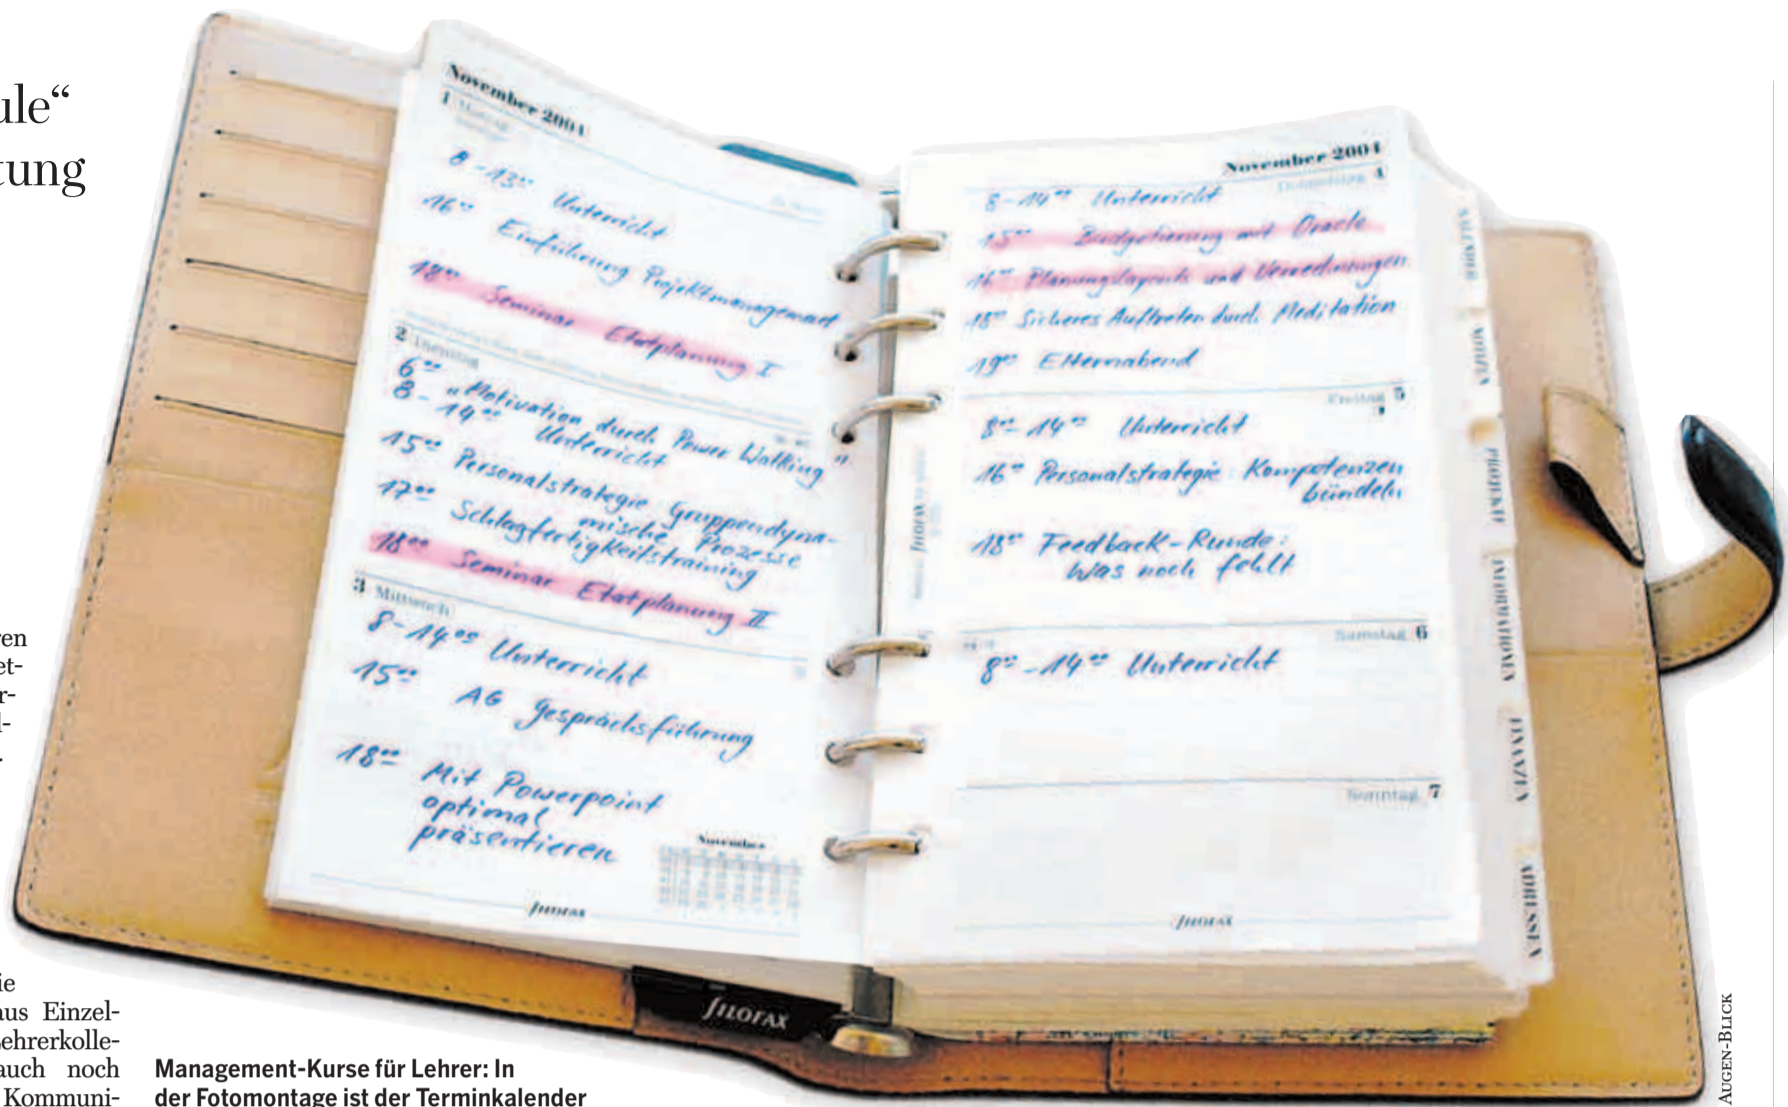 ule“
tung
November 2004
1 Montag
8-13⁰⁰ Unterricht
16⁰⁰ Einführung Projektmanagement
18⁰⁰ Seminar Etatplanung I
2 Dienstag
6⁰⁰ „Motivation durch Power Walking“
8-14⁰⁰ Unterricht
15⁰⁰ Personalstrategie: Gruppendyna-
mische Prozesse
17⁰⁰ Schlagfertigkeitstraining
18⁰⁰ Seminar Etatplanung II
3 Mittwoch
8-14⁰⁰ Unterricht
15⁰⁰ AG Gesprächsführung
18⁰⁰ Mit Powerpoint
optimal
präsentieren
November
FILOFAX
November 2004
Donnerstag 4
8-14⁰⁰ Unterricht
15⁰⁰ Budgetierung mit Oracle
16⁰⁰ Planungslayouts und Verrechnungen
18⁰⁰ Sicheres Auftreten durch Meditation
19⁰⁰ Elternabend
Freitag 5
8⁰⁰-14⁰⁰ Unterricht
16⁰⁰ Personalstrategie: Kompetenzen
bündeln
18⁰⁰ Feedback-Runde:
Was noch fehlt
Samstag 6
8⁰⁰-14⁰⁰ Unterricht
Sonntag 7
FILOFAX
NOTIZEN
PROJEKTE
INFORMATIONEN
FINANZEN
ADRESSEN
FILOFAX
ren
et-
r-
l-
.
ie
aus Einzel-
ehrerkolle-
auch noch
Kommuni-
Management-Kurse für Lehrer: In
der Fotomontage ist der Terminkalender
AUGEN-BLICK